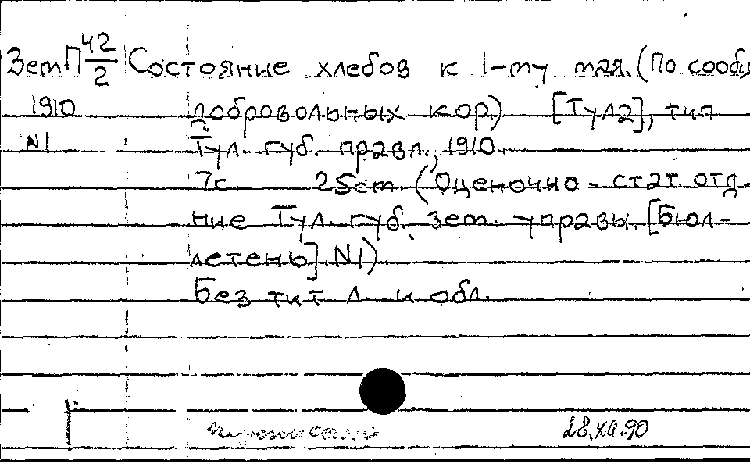 ЗемП 42/2 Состояние хлебов к 1-му мая. (По сообщ
1910 добровольных кор.) [Тула], тип
N1 Тул. губ. правл., 1910.
7с 25см (Оценочно-стат. отд-
ние Тул. губ. зем. управы. [Бюл-
летень] N1)
Без тит. л. и обл.